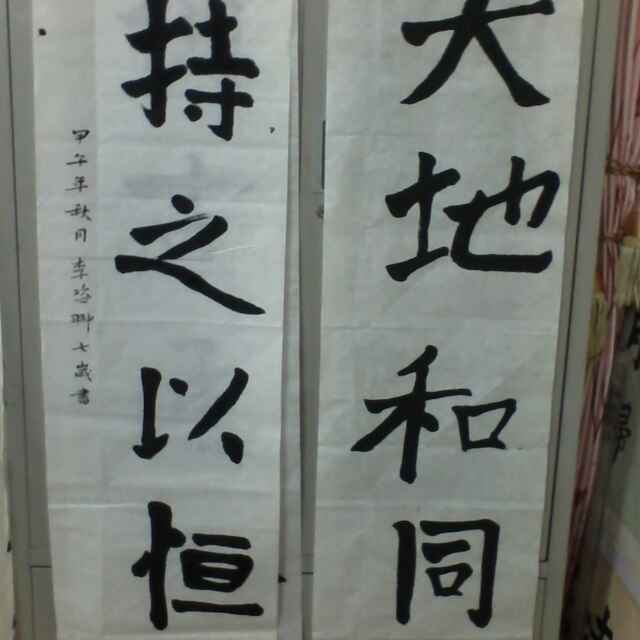 天地和同
持之以恒
甲午年秋月李
七岁书